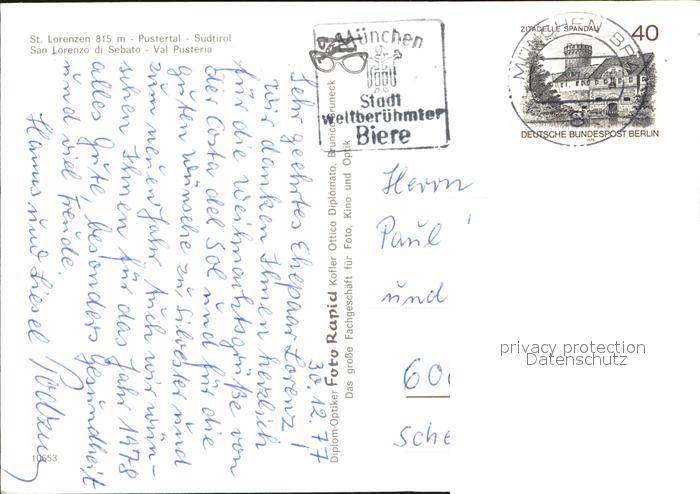 St. Lorenzen 815 m - Pustertal - Südtirol
San Lorenzo di Sebato - Val Pusteria
München
Stadt
weltberühmter
Biere
ZITADELLE SPANDAU
40
DEUTSCHE BUNDESPOST BERLIN
30.12.77
Sehr geehrtes Ehepaar Lorenz!
Wir danken Ihnen herzlich
für die Weihnachtsgrüße von
der Costa del Sol und für die
guten Wünsche zu Silvester und
zum neuen Jahr. Auch wir wün-
schen Ihnen für das Jahr 1978
alles Gute, besonders Gesundheit
und viel Freude.
Hanns und Liesel
Diplom-Optiker Foto Rapid Kofler Ottico Diplomato, Brunico/Bruneck
Das große Fachgeschäft für Foto, Kino und Optik
Herrn
Paul
und
60
sche
privacy protection
Datenschutz
10653